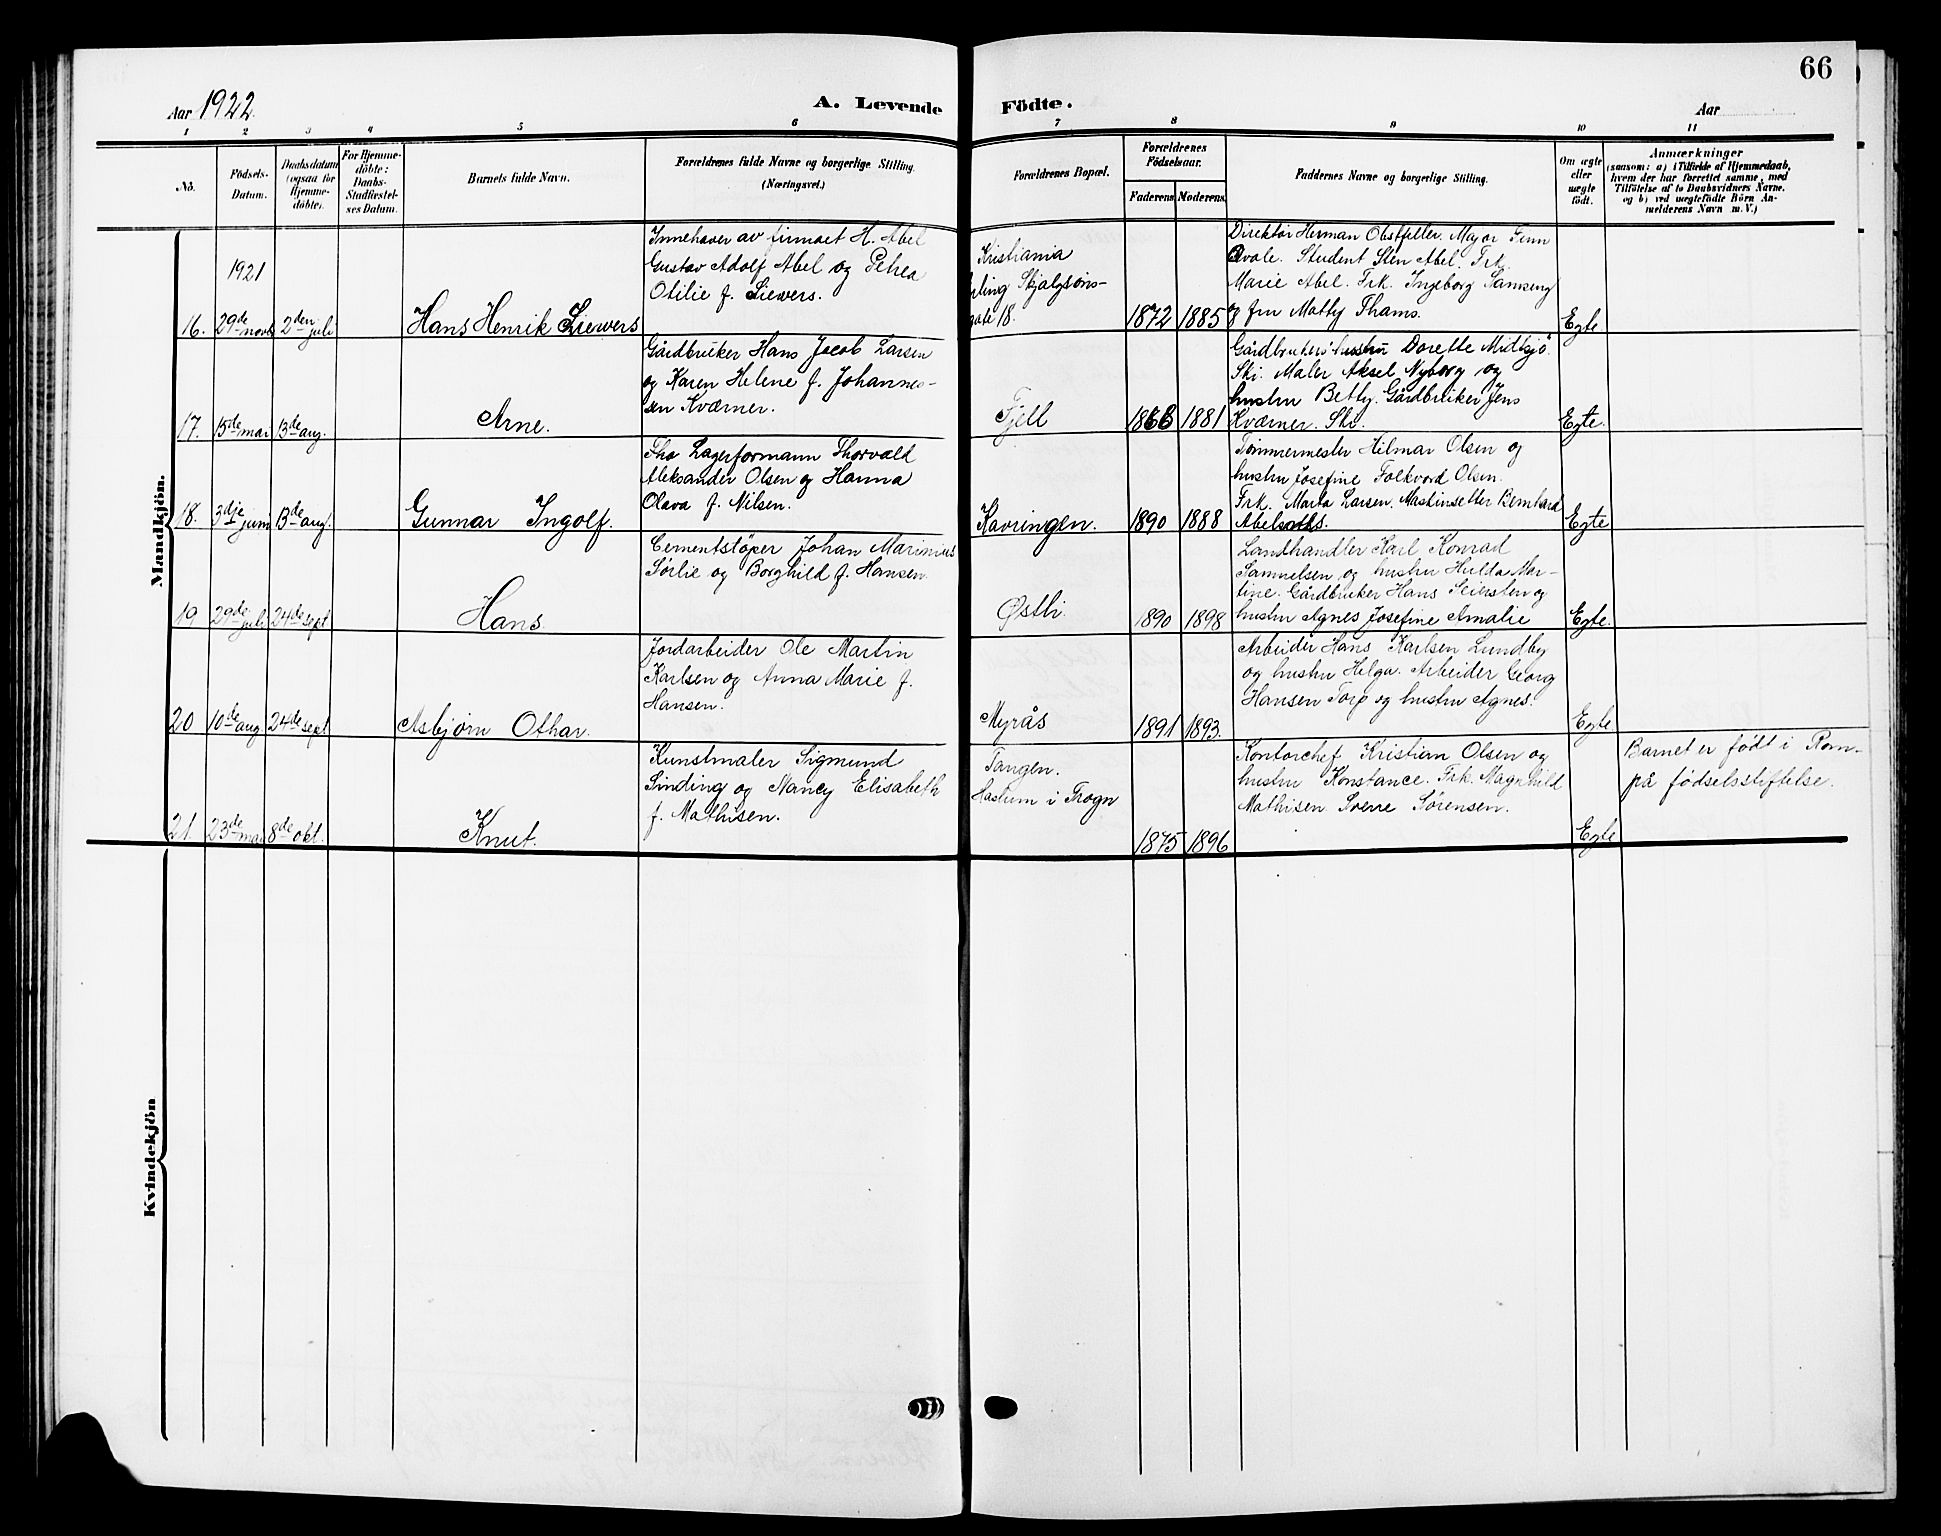 66
Aar 1922.
A. Levende Födte.
Aar
1 2 3 4 5 6 7 8 9 10 11
No.
Födsels-
Datum.
Daabsdatum
(ogsaa for
Hjemme-
döbte).
For Hjemme-
döbte:
Daabs-
Stadfæstel-
ses Datum.
Barnets fulde Navn.
Forældrenes fulde Navne og borgerlige Stilling.
(Næringsvei.)
Forældrenes Bopæl.
Forældrenes
Födselsaar.
Faderens Moderens
Faddernes Navne og borgerlige Stilling.
Om ægte
eller
uægte
födt.
Anmærkninger
(saasom: a) i Tilfælde af Hjemmedaab,
hvem der har forrettet samme, med
Tilföielse af to Daabsvidners Navne.
og b) ved uægtefödte Börn An-
melderens Navn m. V.)
Mandkjön.
1921
16. 29de novb 2den juli
Hans Henrik Siewers
Innehaver av firmaet H. Abel
Gustav Adolf Abel og Petrea
Otilie f. Siewers.
Kristiania
Erling Skjalgsøns-
gate 18.
1872 1885
Direktör Herman Obstfelder. Major Finn
Qvale. Student Sten Abel. Frk.
Marie Abel. Frk. Ingeborg Samsing
og fru Matty Thams.
Egte
17. 15de mai 13de aug.
Arne.
Gårdbruker Hans Jacob Larsen
og Karen Helene f. Johannes-
sen Kværner.
Fjell
1866 1881
Gårdbrukers hustru Dorette Midtsjö
Ski. Maler Aksel Nyborg og
hustru Betty. Gårdbruker Jens
Kværner. Ski.
Egte.
18. 3dje juni 13de aug.
Gunnar Ingolf.
Lagerformann Thorvald
Aleksander Olsen og Hanna
Olava f. Nilsen.
Kavringen.
1890 1888
Tömmermester Hilmar Olsen og
hustru Josefine Folkvord Olsen.
Frk. Marta Larsen. Bernhard
Egte
19 29de juli 24de sept
Hans
Cementstöper Johan Marinius
Sørlie og Borghild f. Hansen.
Østli
1890 1898
Landhandler Karl Konrad
Samuelsen og hustru Hulda Mar-
tine. Gårdbruker Hans Seiersten og
hustru Agnes Josefine Amalie
Egte.
20 10de aug. 24de sept
Asbjørn Othar.
Jordarbeider Ole Martin
Karlsen og Anna Marie f.
Hansen.
Myrås
1891 1893.
Arbeider Hans Karlsen Lundby
og hustru Helga. Arbeider Georg
Hansen Torp og hustru Agnes.
Egte
21. 23de mai 8de okt.
Knut.
Kunstmaler Sigmund
Sinding og Nancy Elisabeth
f. Mathisen.
Tangen.
Haslum i Frogn
1875 1896
Kontorchef Kristian Olsen og
hustru Konstance. Frk. Magnhild
Mathisen Sverre Sørensen.
Egte
Barnet er født i Rom-
på fødselsstiftelse.
Kvindekjön